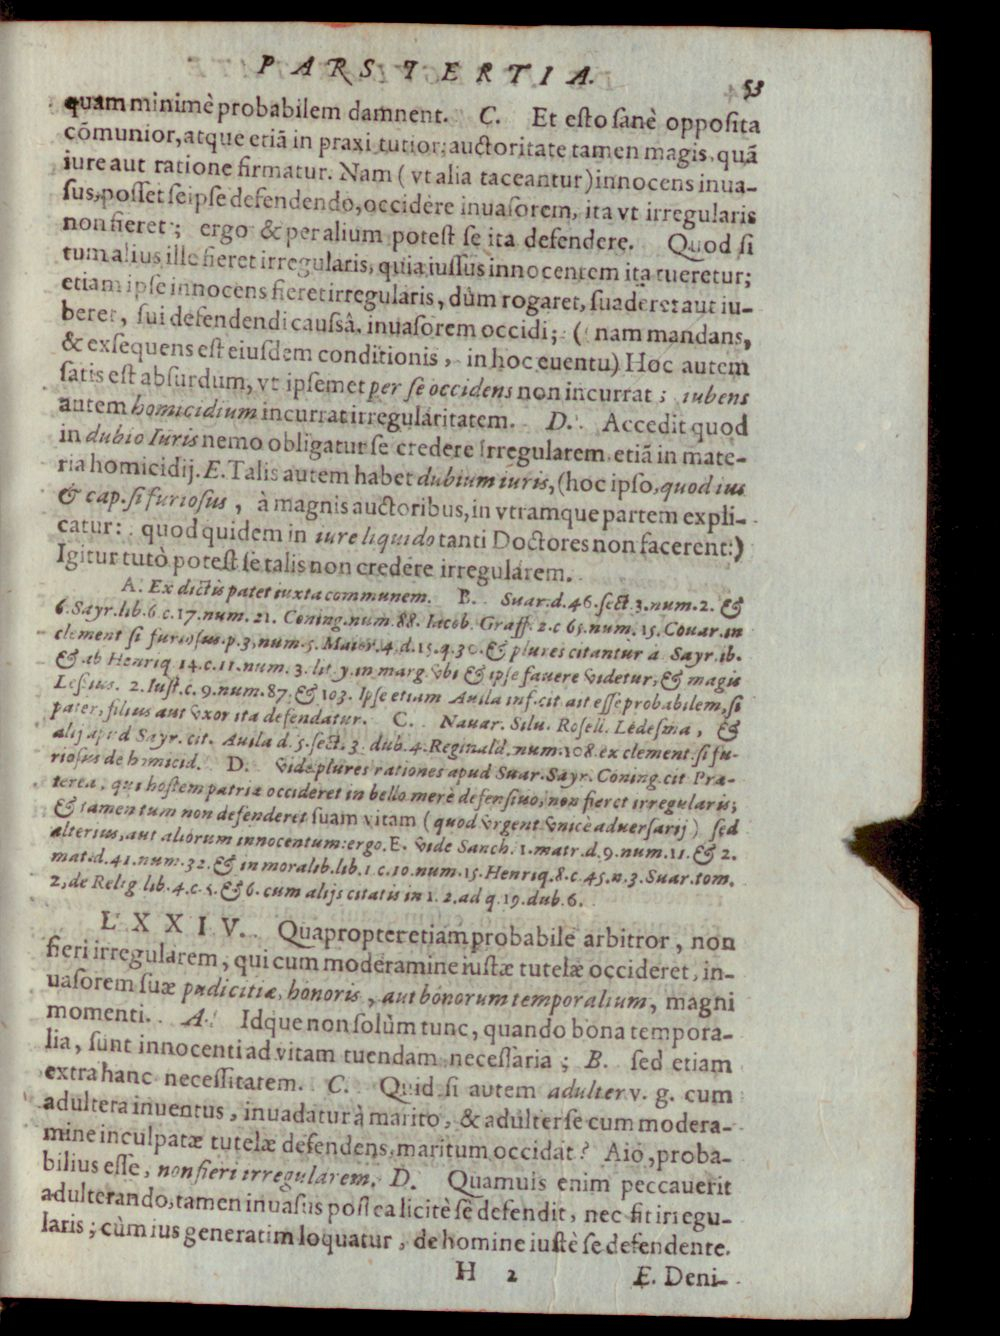 PARS TERTIA. 53
quam minimè probabilem damnent. C. Et esto sanè opposita
cōmunior, atque etiā in praxi tutior; auctoritate tamen magis, quā
iure aut ratione firmatur. Nam (vt alia taceantur) innocens inua-
sus, posset seipse defendendo, occidere inuasorem, ita vt irregularis
non fieret; ergo & per alium potest se ita defendere. Quod si
tum alius ille fieret irregularis, quia iussus innocentem ita tueretur;
etiam ipse innocens fieret irregularis, dùm rogaret, suaderet aut iu-
beret, sui defendendi caussâ, inuasorem occidi; (nam mandans,
& exsequens est eiusdem conditionis, in hoc euentu) Hoc autem
satis est absurdum, vt ipsemet per se occidens non incurrat; iubens
autem homicidium incurrat irregularitatem. D. Accedit quod
in dubio Iuris nemo obligatur se credere irregularem etiā in mate-
ria homicidij. E. Talis autem habet dubium iuris, (hoc ipso, quod ius
& cap. si furiosus, à magnis auctoribus, in vtramque partem expli-
catur: quod quidem in iure liquido tanti Doctores non facerent:)
Igitur tutò potest se talis non credere irregularem.
A. Ex dictis patet iuxta communem. B. Suar. d. 46. sect. 3. num. 2. &
6. Sayr. lib. 6. c. 17. num. 21. Coning. num. 88. Iacob. Graff. 2. c 65. num. 15. Couar. in
clement si furiosus. p. 3, num. 5. Maior. 4. d. 15. q. 30. & plures citantur à Sayr. ib.
& ab Henriq 14. c. 11. num. 3. lit. y. in marg vbi & ipse fauere videtur, & magis
Lessius. 2. Iust. c. 9. num. 87. & 103. Ipse etiam Auila inf. cit ait esse probabilem, si
pater, filius aut vxor ita defendatur. C. Nauar. Silu. Rosell. Ledesma, &
alij apud Sayr. cit. Auila d. 5. sect. 3. dub. 4. Reginald. num. 108. ex clement. si fu-
riosus de homicid. D. vide plures rationes apud Suar. Sayr. Coning. cit Præ-
terea, qui hostem patriæ occideret in bello merè defensiuo, non fieret irregularis;
& tamen tum non defenderet suam vitam (quod vrgent vnicè aduersarij) sed
alterius, aut aliorum innocentum: ergo. E. vide Sanch. 1. matr. d. 9. num. 11. & 2.
mat. d. 41. num. 32. & in moralib. lib. 1. c. 10. num. 15. Henriq. 8. c. 45. n. 3. Suar. tom.
2, de Relig lib. 4. c. 5. & 6. cum alijs citatis in 1. 2. ad q. 19. dub. 6.
LXXIV. Quapropter etiam probabile arbitror, non
fieri irregularem, qui cum moderamine iustæ tutelæ occideret, in-
uasorem suæ pudicitiæ, honoris, aut bonorum temporalium, magni
momenti. A. Idque non solùm tunc, quando bona tempora-
lia, sunt innocenti ad vitam tuendam necessària; B. sed etiam
extra hanc necessitatem. C. Quid si autem adulter v. g. cum
adultera inuentus, inuadatur à marito, & adulter se cum modera-
mine inculpatæ tutelæ defendens, maritum occidat? Aio, proba-
bilius esse, non fieri irregularem. D. Quamuis enim peccauerit
adulterando, tamen inuasus postea licitè se defendit, nec fit irregu-
laris; cùm ius generatim loquatur, de homine iustè se defendente.
H 2 E. Deni-